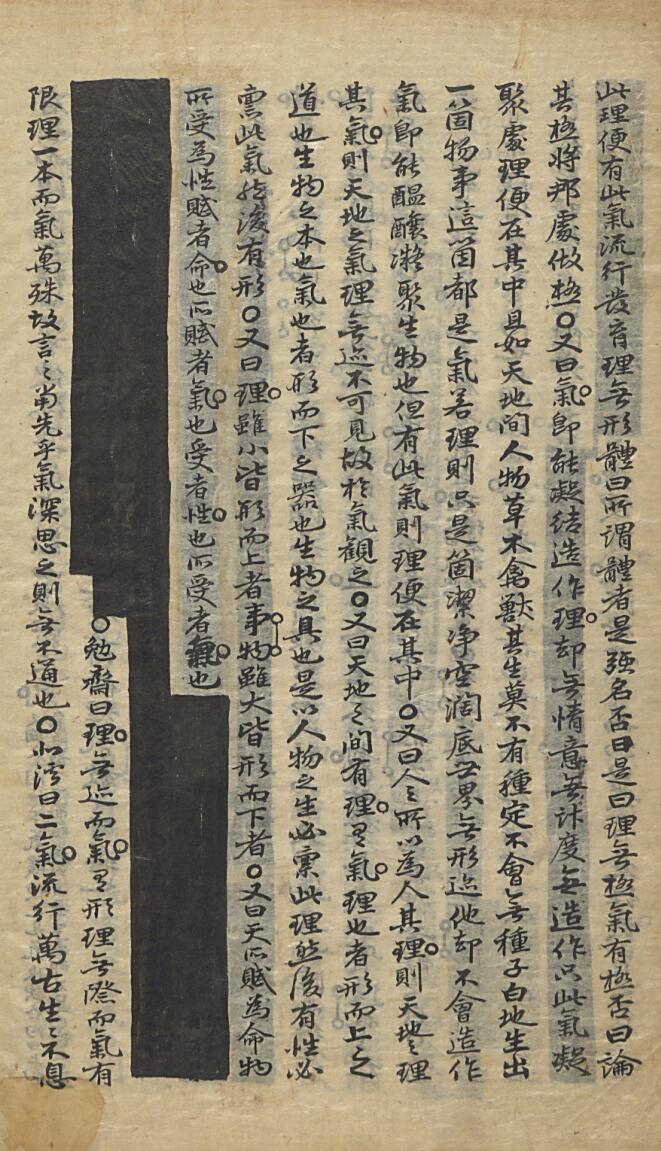 此理便有此氣流行發育理無形體曰所謂體者是强名否曰是曰理無極氣有極否曰論
其極將那處做極○又曰氣即能凝結造作理却無情意無計度無造作只此氣凝
聚處理便在其中且如天地間人物草木禽獸其生莫不有種定不會無種子白地生出
一箇物事這箇都是氣若理則只是箇潔淨空濶底世界無形迹他却不會造作
氣即能醞釀凝聚生物也但有此氣則理便在其中○又曰人之所以為人其理則天地之理
其氣則天地之氣理無迹不可見故於氣觀之○又曰天地之間有理有氣理也者形而上之
道也生物之本也氣也者形而下之器也生物之具也是以人物之生必稟此理然後有性必
稟此氣然後有形○又曰理雖小皆形而上者事物雖大皆形而下者○又曰天所賦為命物
所受為性賦者命也所賦者氣也受者性也所受者氣也
○勉齋曰理無迹而氣有形理無際而氣有
限理一本而氣萬殊故言之當先乎氣深思之則無不通也○北溪曰二氣流行萬古生〻不息